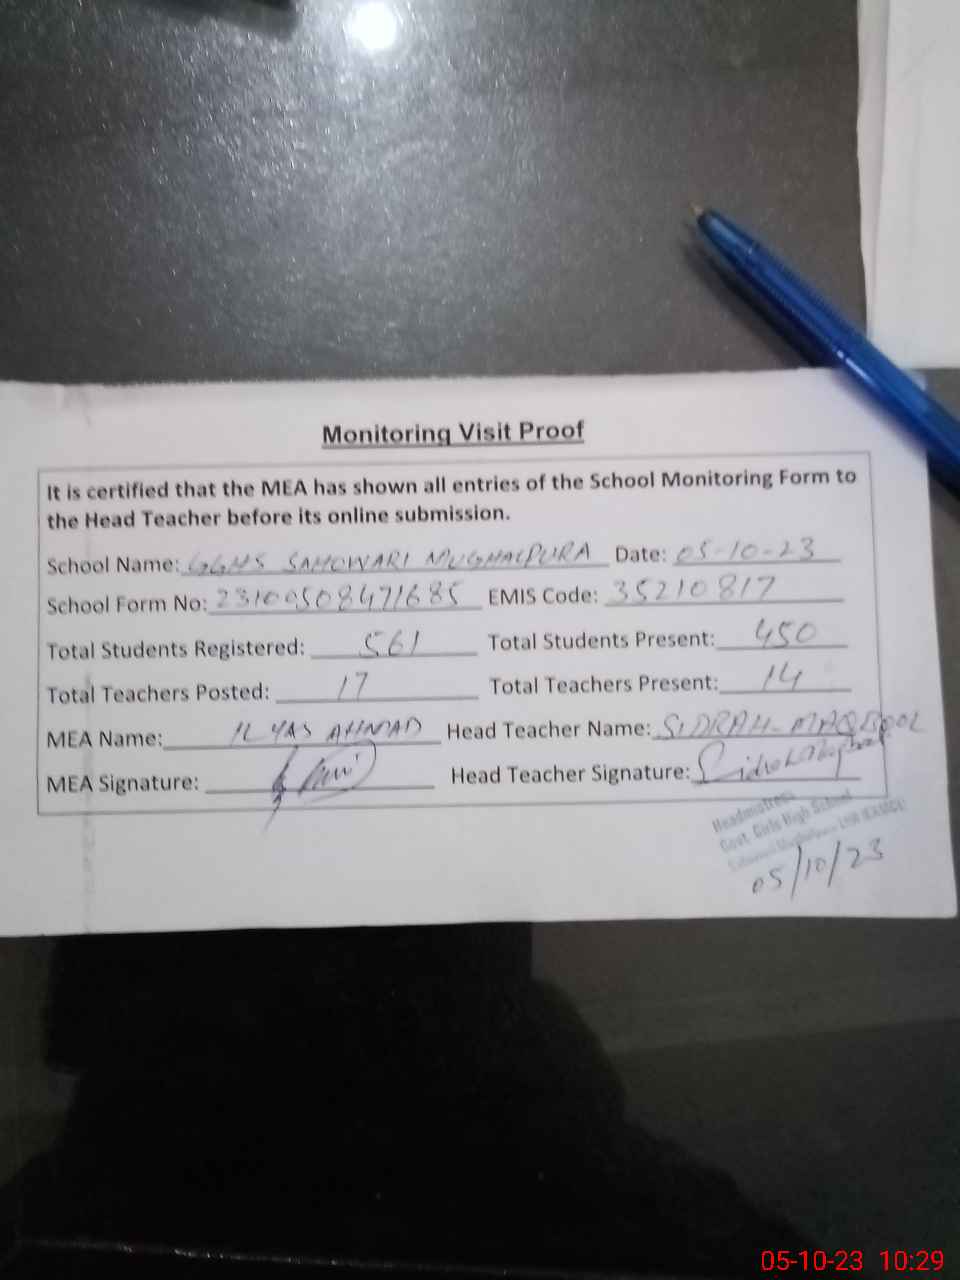 Monitoring Visit Proof
It is certified that the MEA has shown all entries of the School Monitoring Form to
the Head Teacher before its online submission.
School Name: GGHS SAHOWARI MUGHALPURA Date: 05-10-23
School Form No: 23100508471685 EMIS Code: 35210817
Total Students Registered: 561 Total Students Present: 450
Total Teachers Posted: 17 Total Teachers Present: 14
MEA Name: ILYAS AHMAD Head Teacher Name: SIDRAH MAQBOOL
MEA Signature: Head Teacher Signature: Sidrah
Headmistress
Govt. Girls High School
05/10/23
05-10-23 10:29